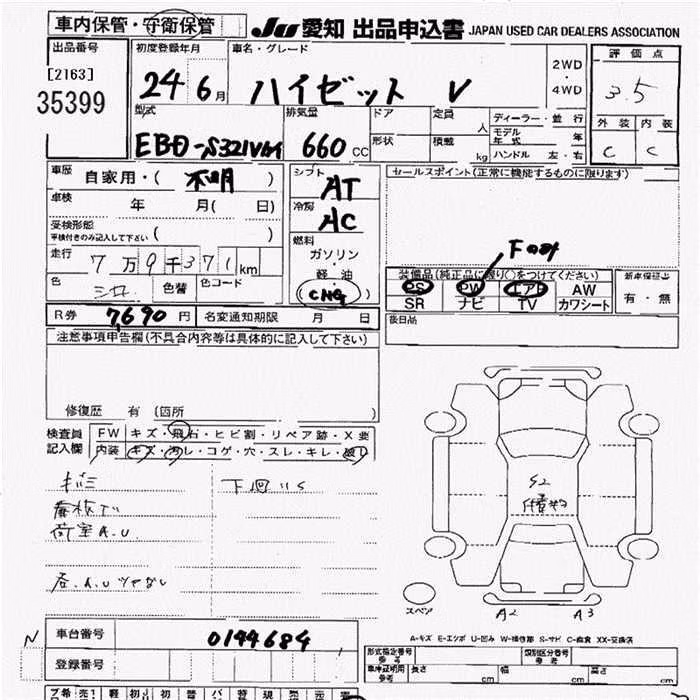 車内保管・守衛保管
JU 愛知 出品申込書 JAPAN USED CAR DEALERS ASSOCIATION
出品番号
[2163]
35399
初度登録年月
24 6 月
車名・グレード
ハイゼット V
2WD
・
4WD
評価点
3.5
外装 内装
C C
型式
EBD-S321V改
排気量
660 CC
ドア 定員 人
形状 積載 kg
ディーラー・並行
モデル年式 年
ハンドル 左・右
車歴
自家用・( 不明 )
車検 年 月( 日)
受検形態
車検付きのみ記入して下さい ( )
走行
7万9千371km
色 シロ 色替 色コード
シフト
AT
冷房
AC
燃料
ガソリン
・
軽・油
(CNG)
セールスポイント(正常に機能するものに限ります)
Fのみ
装備品(純正品に限り○をつけてください)
PS PW エアB AW
SR ナビ TV カワシート
新車保証書
有・無
後日品
R券 7,690 円 名変通知期限 月 日
注意事項申告欄(不具合内容等は具体的に記入して下さい)
修復歴 有 (箇所 )
検査員
記入欄
FW キズ・飛石・ヒビ割・リペア跡・X要
内装 キズ・汚レ・コゲ・穴・スレ・キレ・破レ
下廻りS
荷室A.U
S2
スペア
A2 A3
A-キズ E-エクボ U-凹み W-補修跡 S-サビ C-腐食 XX-交換済
N
車台番号 0144684
登録番号
形式指定番号
参考
類別区分番号
参考
車庫証明用
参考
長さ cm 幅 cm 高さ cm